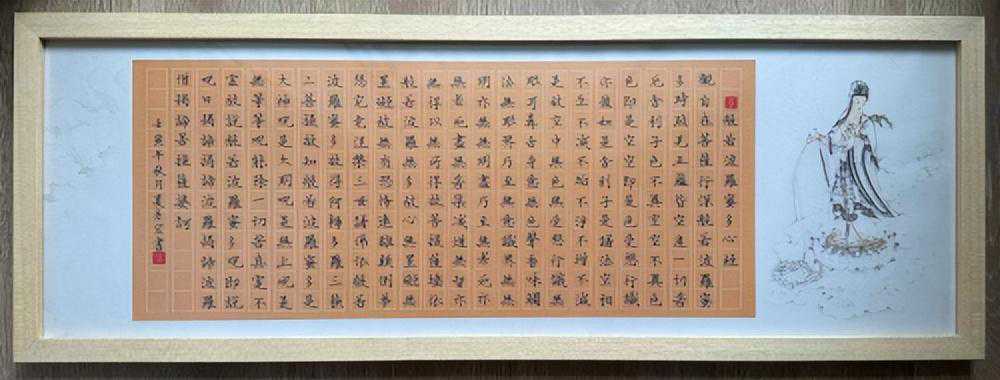 般若波羅蜜多心經
觀自在菩薩行深般若波羅蜜
多時照見五蘊皆空度一切苦
厄舍利子色不異空空不異色
色即是空空即是色受想行識
亦復如是舍利子是諸法空相
不生不滅不垢不淨不增不減
是故空中無色無受想行識無
眼耳鼻舌身意無色聲香味觸
法無眼界乃至無意識界無無
明亦無無明盡乃至無老死亦
無老死盡無苦集滅道無智亦
無得以無所得故菩提薩埵依
般若波羅蜜多故心無罣礙無
罣礙故無有恐怖遠離顛倒夢
想究竟涅槃三世諸佛依般若
波羅蜜多故得阿耨多羅三藐
三菩提故知般若波羅蜜多是
大神呪是大明呪是無上呪是
無等等呪能除一切苦真實不
虛故說般若波羅蜜多呪即說
呪曰揭諦揭諦波羅揭諦波羅
僧揭諦菩提薩婆訶
壬寅年秋月書